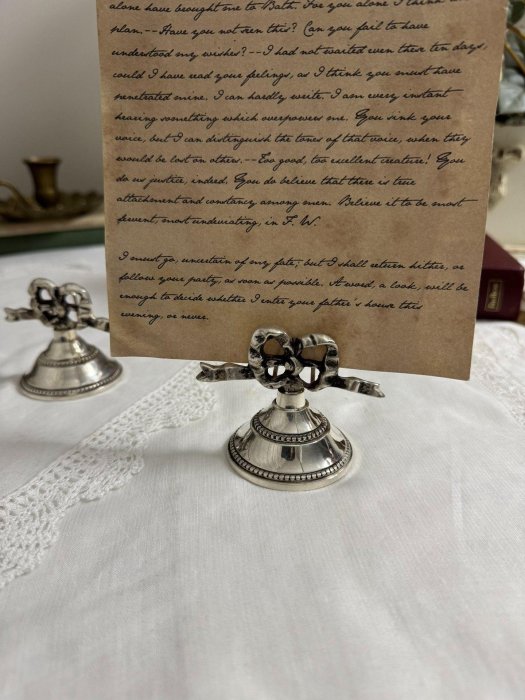 alone have brought me to Bath. For you alone I think
plan.--Have you not seen this? Can you fail to have
understood my wishes?--I had not waited even these ten days,
could I have read your feelings, as I think you must have
penetrated mine. I can hardly write. I am every instant
hearing something which overpowers me. You sink your
voice, but I can distinguish the tones of that voice, when they
would be lost on others.--Too good, too excellent creature! You
do us justice, indeed. You do believe that there is true
attachment and constancy among men. Believe it to be most
fervent, most undeviating, in F. W.
I must go, uncertain of my fate; but I shall return hither, or
follow your party, as soon as possible. A word, a look, will be
enough to decide whether I enter your father's house this
evening, or never.